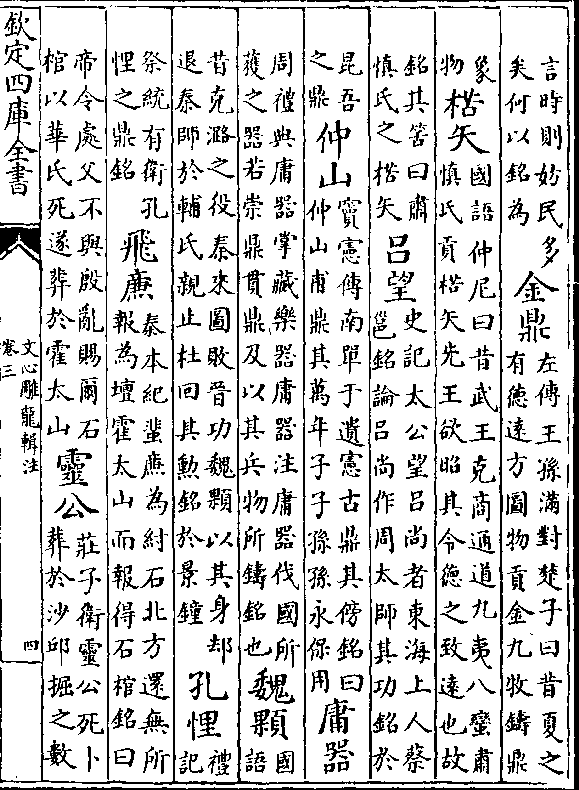 言時則妨民多
矣何以銘為
金鼎
左傳王孫滿對楚子曰昔夏之
有德遠方圖物貢金九牧鑄鼎
象
物
楛矢
國語仲尼曰昔武王克商通道九夷八蠻肅
慎氏貢楛矢先王欲昭其令德之致遠也故
銘其筈曰肅
慎氏之楛矢
呂望
史記太公望呂尚者東海上人蔡
邕銘論呂尚作周太師其功銘於
昆吾
之鼎
仲山
竇憲傳南單于遺憲古鼎其傍銘曰
仲山甫鼎其萬年子子孫孫永保用
庸器
周禮典庸器掌藏樂器庸器注庸器伐國所
獲之器若崇鼎貫鼎及以其兵物所鑄銘也
魏顆
國
語
昔克潞之役秦來圖敗晉功魏顆以其身却
退秦師於輔氏親止杜回其勲銘於景鐘
孔悝
禮
記
祭統有衛孔
悝之鼎銘
飛廉
秦本紀蜚廉為紂石北方還無所
報為壇霍太山而報得石棺銘曰
帝令處父不與殷亂賜爾石
棺以華氏死遂葬於霍太山
靈公
莊子衛靈公死卜
葬於沙邱掘之數
欽定四庫全書
文心雕龍輯注
卷三
四